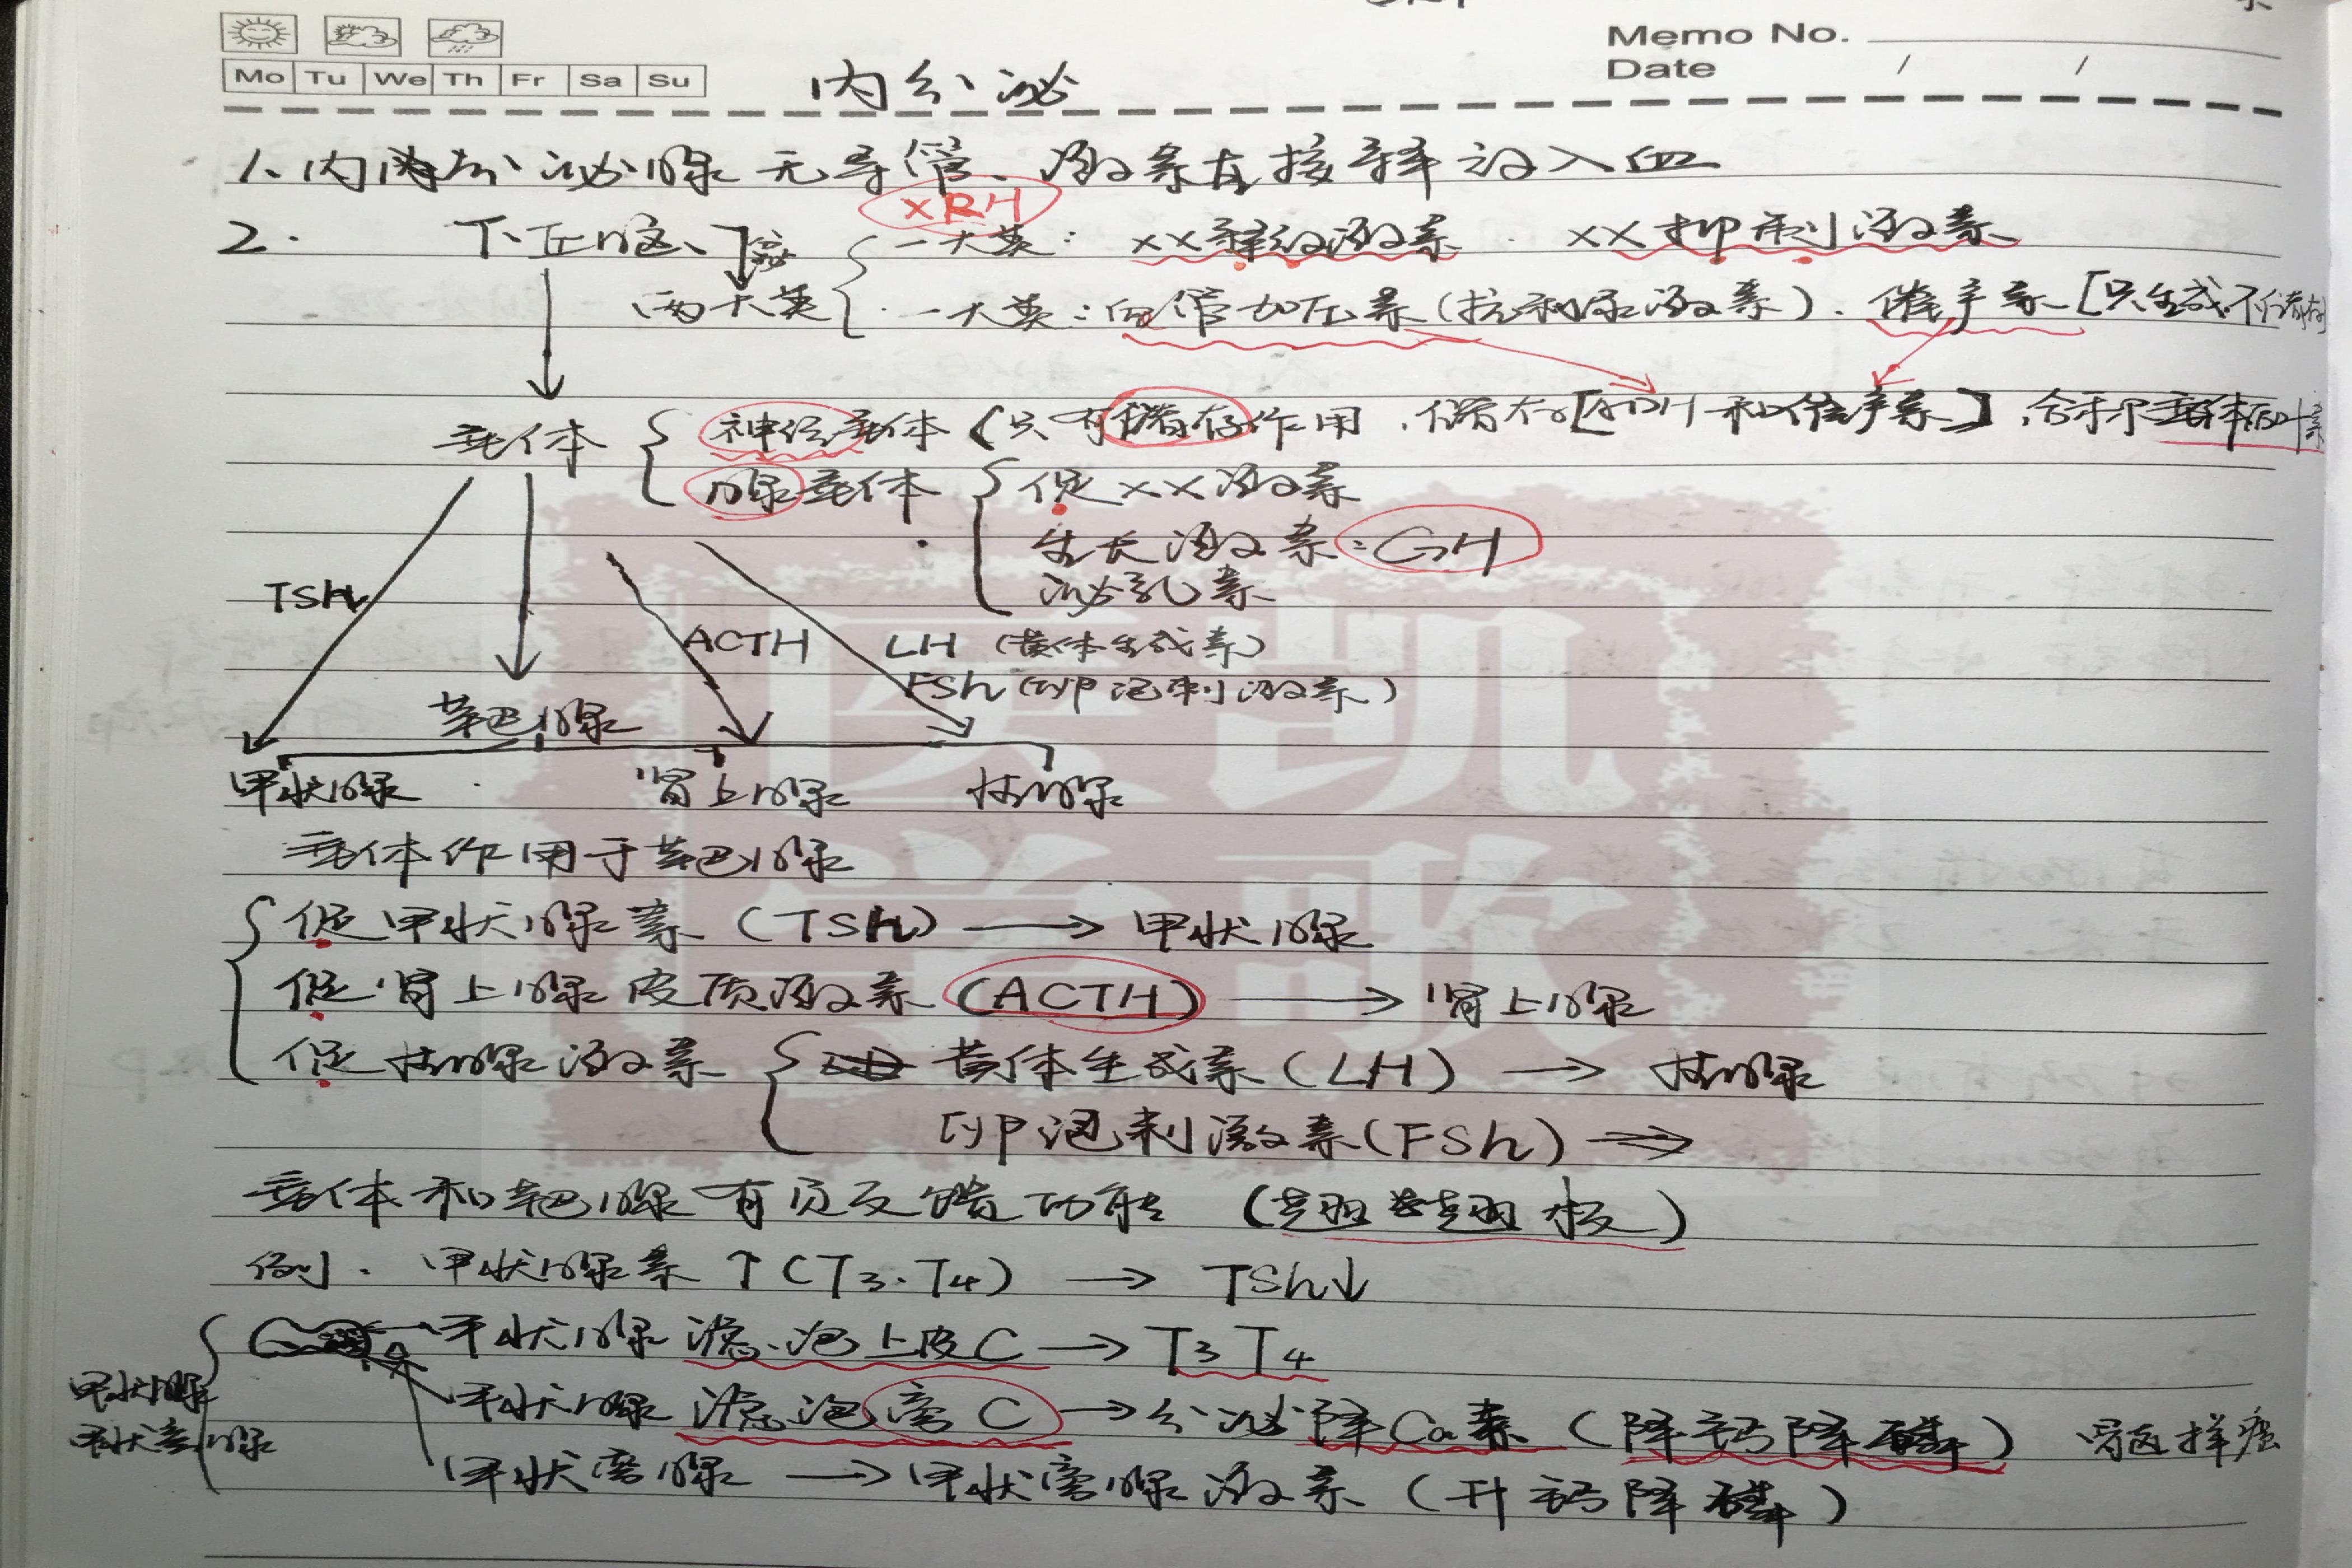 Memo No.
Date / /
Mo Tu We Th Fr Sa Su
内分泌
1、内分泌腺无导管、激素直接释放入血
xRH
2. 下丘脑、
一大类: xx释放激素 . xx抑制激素
两大类
一大类:血管加压素(抗利尿激素). 催产素[只生成.不储存
垂体
神经垂体(只有储存作用,储存[ADH和催产素],
腺垂体 促xx激素
生长激素:GH
泌乳素
TSH
ACTH
LH (黄体生成素)
FSh (卵泡刺激素)
靶腺
甲状腺 肾上腺 性腺
垂体作用于靶腺
促甲状腺素 (TSH) → 甲状腺
促肾上腺皮质激素 (ACTH) → 肾上腺
促性腺激素 黄体生成素(LH) → 性腺
卵泡刺激素(FSh) →
垂体和靶腺有负反馈功能 (翘翘板)
例. 甲状腺素↑(T3.T4) → TSh↓
甲状腺滤泡上皮C → T3 T4
甲状腺
甲状旁腺
甲状腺滤泡旁C → 分泌降Ca素(降钙降磷) 髓样癌
甲状旁腺 → 甲状旁腺激素 (升钙降磷)
医凯
学歌